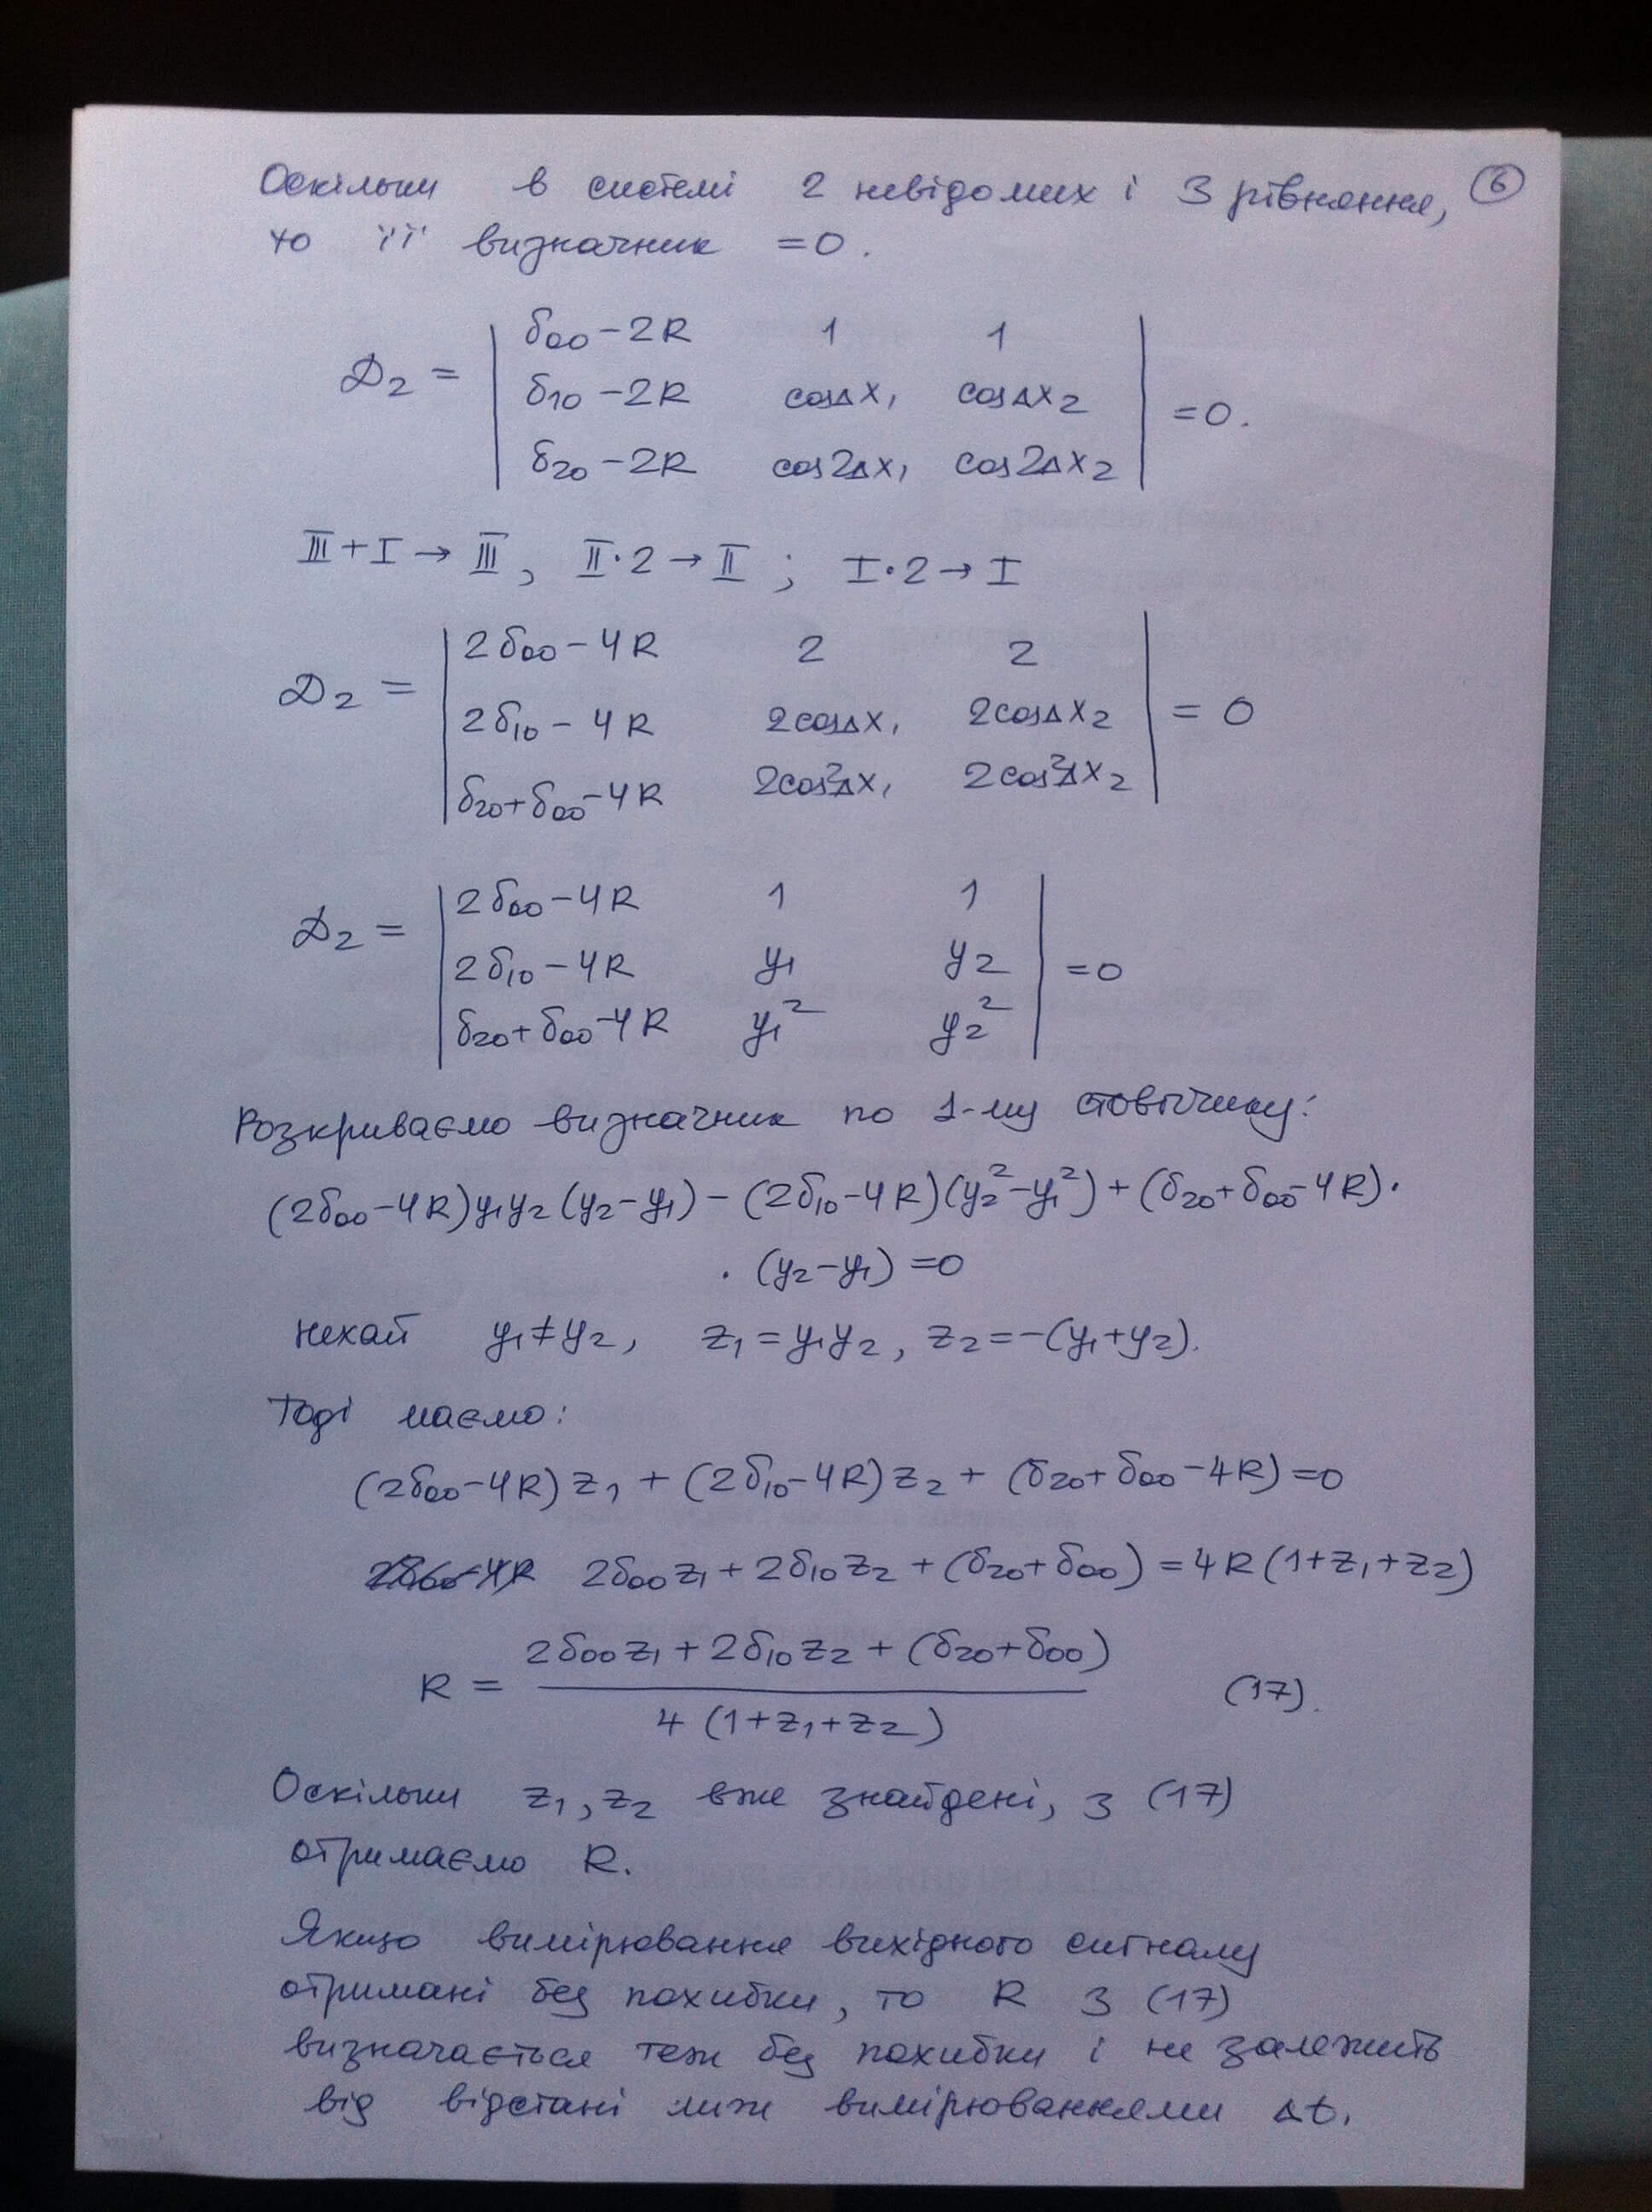 Оскільки в системі 2 невідомих і 3 рівняння, ⑥
то її визначник = 0.
D₂ = | δ₀₀ - 2R 1 1 |
| δ₁₀ - 2R cosΔx₁ cosΔx₂ | = 0.
| δ₂₀ - 2R cos2Δx₁ cos2Δx₂ |
III + I → III, II·2 → II; I·2 → I
D₂ = | 2δ₀₀ - 4R 2 2 |
| 2δ₁₀ - 4R 2cosΔx₁ 2cosΔx₂ | = 0
| δ₂₀ + δ₀₀ - 4R 2cos²Δx₁ 2cos²Δx₂ |
D₂ = | 2δ₀₀ - 4R 1 1 |
| 2δ₁₀ - 4R y₁ y₂ | = 0
| δ₂₀ + δ₀₀ - 4R y₁² y₂² |
Розкриваємо визначник по 1-му стовпчику:
(2δ₀₀ - 4R)y₁y₂(y₂ - y₁) - (2δ₁₀ - 4R)(y₂² - y₁²) + (δ₂₀ + δ₀₀ - 4R)·
·(y₂ - y₁) = 0
Нехай y₁ ≠ y₂, z₁ = y₁y₂, z₂ = -(y₁ + y₂).
Тоді маємо:
(2δ₀₀ - 4R)z₁ + (2δ₁₀ - 4R)z₂ + (δ₂₀ + δ₀₀ - 4R) = 0
2δ₀₀z₁ + 2δ₁₀z₂ + (δ₂₀ + δ₀₀) = 4R(1 + z₁ + z₂)
2δ₀₀z₁ + 2δ₁₀z₂ + (δ₂₀ + δ₀₀)
R = ——— (17).
4(1 + z₁ + z₂)
Оскільки z₁, z₂ вже знайдені, з (17)
отримаємо R.
Якщо вимірювання вихідного сигналу
отримані без похибки, то R з (17)
визначається теж без похибки і не залежить
від відстані між вимірюваннями Δt.